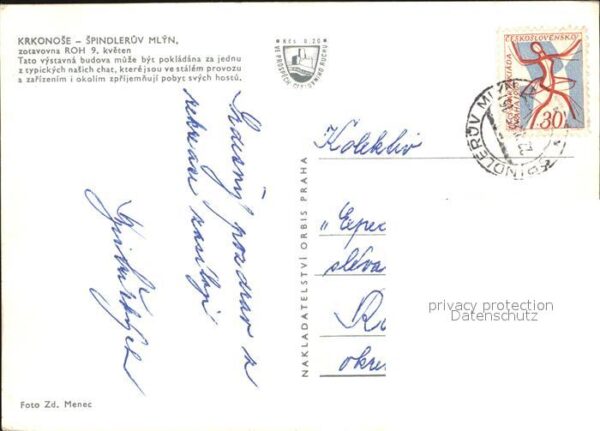 KRKONOŠE – ŠPINDLERŮV MLÝN,
zotavovna ROH 9. květen
Tato výstavná budova může být pokládána za jednu
z typických našich chat, které jsou ve stálém provozu
a zařízením i okolím zpříjemňují pobyt svých hostů.
Kčs 0,20
VE PROSPĚCH CESTOVNÍHO RUCHU
ČESKOSLOVENSKO
30
ŠPINDLERŮV MLÝN
Srdečný pozdrav z
rekreace zasílají
NAKLADATELSTVÍ ORBIS PRAHA
Kolektiv
"Expe
sléva
okre
privacy protection
Datenschutz
Foto Zd. Menec